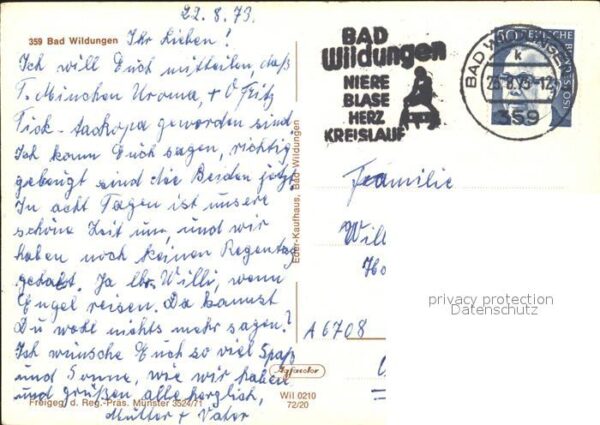 22.8.73.
359 Bad Wildungen
Ihr Lieben!
Ich will Euch mitteilen, daß
T. Minchen Uroma, + O. Fritz
geworden sind
Ich kann Euch sagen, richtig
gebeugt sind die Beiden jetzt.
In acht Tagen ist unsere
schöne Zeit um, und wir
haben noch keinen Regentag
gehabt. Ja lbr. Willi, wenn
Engel reisen. Da kannst
Du wohl nichts mehr sagen?
Ich wünsche Euch so viel Spaß
und Sonne, wie wir haben
und grüßen alle herzlich,
Mutter + Vater
Freigeg. d. Reg.-Präs. Münster 3524/71
Eder-Kaufhaus, Bad Wildungen
Agfacolor
Wil 0210
72/20
BAD
Wildungen
NIERE
BLASE
HERZ
KREISLAUF
BAD WILDUNGEN
k
23.8.73-12
359
50
DEUTSCHE
BUNDESPOST
Familie
Will
A 6708
privacy protection
Datenschutz